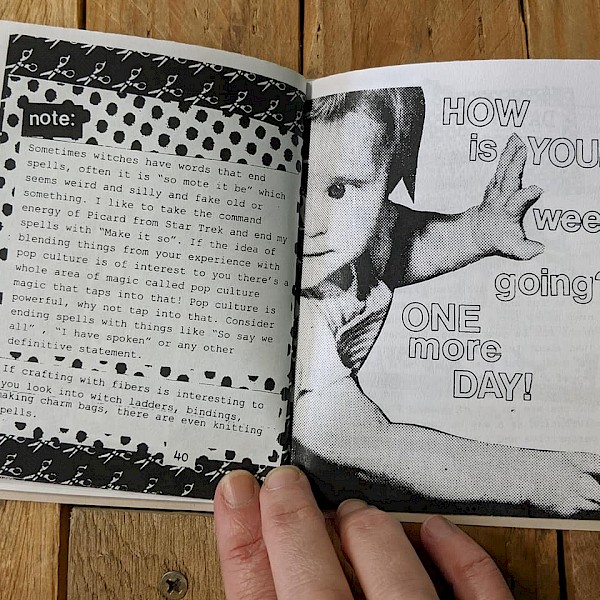 note:
Sometimes witches have words that end
spells, often it is "so mote it be" which
seems weird and silly and fake old or
something. I like to take the command
energy of Picard from Star Trek and end my
spells with "Make it so". If the idea of
blending things from your experience with
pop culture is of interest to you there's a
whole area of magic called pop culture
magic that taps into that! Pop culture is
powerful, why not tap into that. Consider
ending spells with things like "So say we
all" , "I have spoken" or any other
definitive statement.
If crafting with fibers is interesting to
you look into witch ladders, bindings,
making charm bags, there are even knitting
spells.
40
HOW
is YOU
wee
going
ONE
more
DAY!